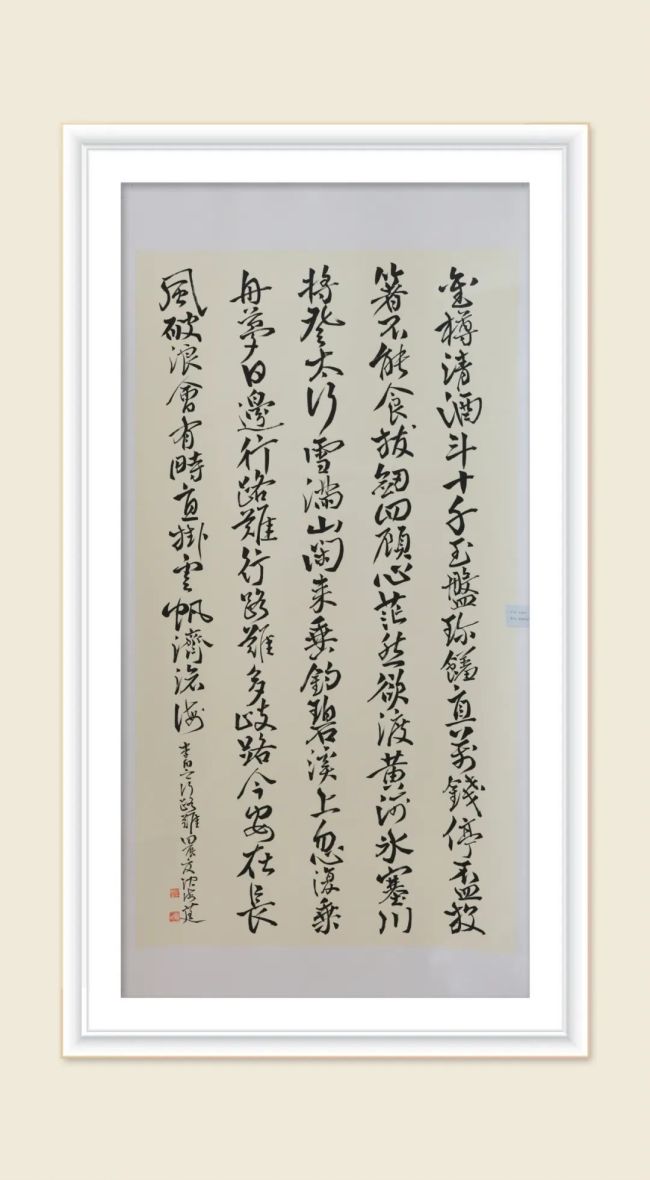 金樽清酒斗十千玉盤珍饈直萬錢停盃投
箸不能食拔劍四顧心茫然欲渡黃河冰塞川
將登太行雪滿山閑来乘釣碧溪上忽復乘
舟夢日邊行路難行路難多歧路今安在長
風破浪會有時直掛雲帆濟滄海
李白之行路難